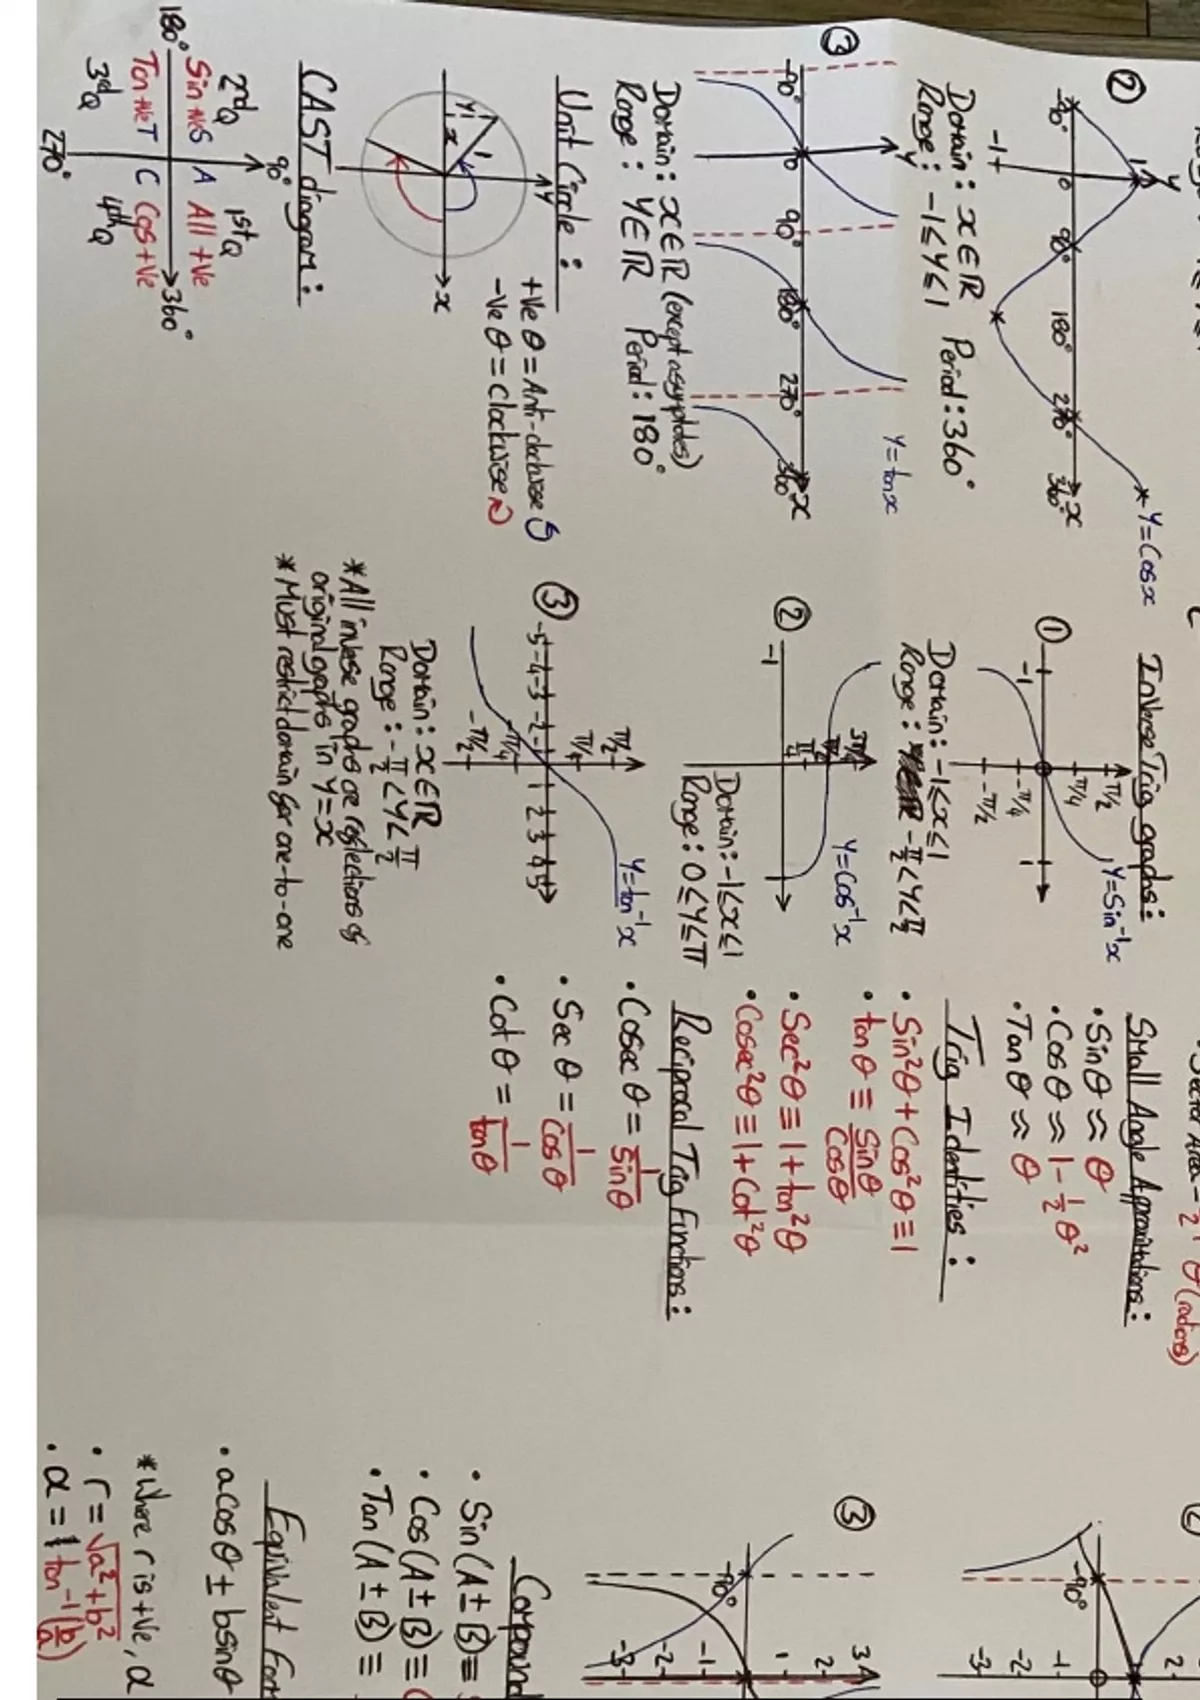 ②
y
1
-90°
0
90°
180°
270°
360°
x
-1
y=Cosx
Domain: x∈ℝ
Range: -1≤y≤1 Period: 360°
③
y
-90°
0
90°
180°
270°
360°
x
y=tanx
Domain: x∈ℝ (except assymptotes)
Range: y∈ℝ Period: 180°
Unit Circle:
y
x
1
y
x
+ve θ = Anti-clockwise
-ve θ = Clockwise
CAST diagram:
90°
2ndQ
1stQ
Sin+ve S
A All +ve
180°
360°
Tan+ve T
C Cos+ve
3rdQ
4thQ
270°
Inverse Trig graphs:
①
π/2
π/4
-1
1
-π/4
-π/2
y=Sin⁻¹x
Domain: -1≤x≤1
Range: -π/2<y<π/2
②
3π/4
π/2
π/4
-1
y=Cos⁻¹x
Domain: -1≤x≤1
Range: 0≤y≤π
③
π/2
π/4
-5 -4 -3 -2 -1 1 2 3 4 5
-π/4
-π/2
y=tan⁻¹x
Domain: x∈ℝ
Range: -π/2<y<π/2
*All inverse graphs are reflections of
original graphs in y=x
*Must restrict domain for one-to-one
θ (radians)
Small Angle Approximations:
• Sinθ ≈ θ
• Cosθ ≈ 1-½θ²
• Tanθ ≈ θ
Trig Identities:
• Sin²θ + Cos²θ ≡ 1
• tanθ ≡ Sinθ/Cosθ
• Sec²θ ≡ 1+tan²θ
• Cosec²θ ≡ 1+Cot²θ
Reciprocal Trig Functions:
• Cosec θ = 1/Sinθ
• Sec θ = 1/Cosθ
• Cot θ = 1/tanθ
2
-90°
-1
-2
-3
③
3
2
1
-90°
-1
-2
-3
Compound
• Sin(A±B)≡
• Cos(A±B)≡
• Tan(A±B)≡
Equivalent Form
• acosθ ± bsinθ
*Where r is +ve, α
• r=√a²+b²
• α = tan⁻¹(b/a)